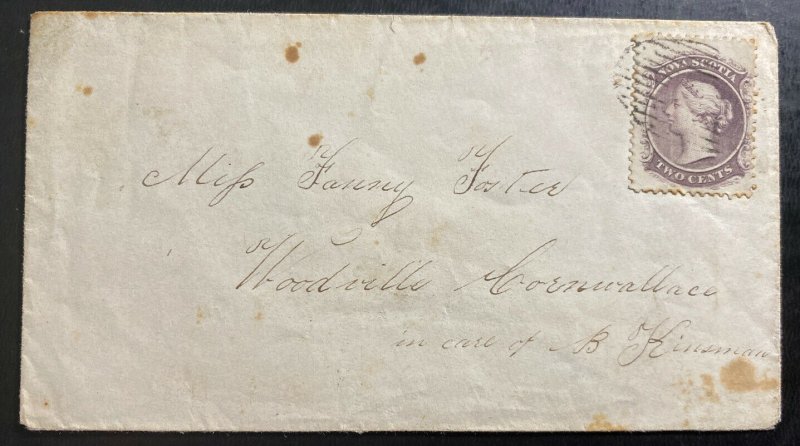 NOVA SCOTIA
TWO CENTS
Miſs Fanny Foster
Woodville Cornwallace
in care of B Kinsman